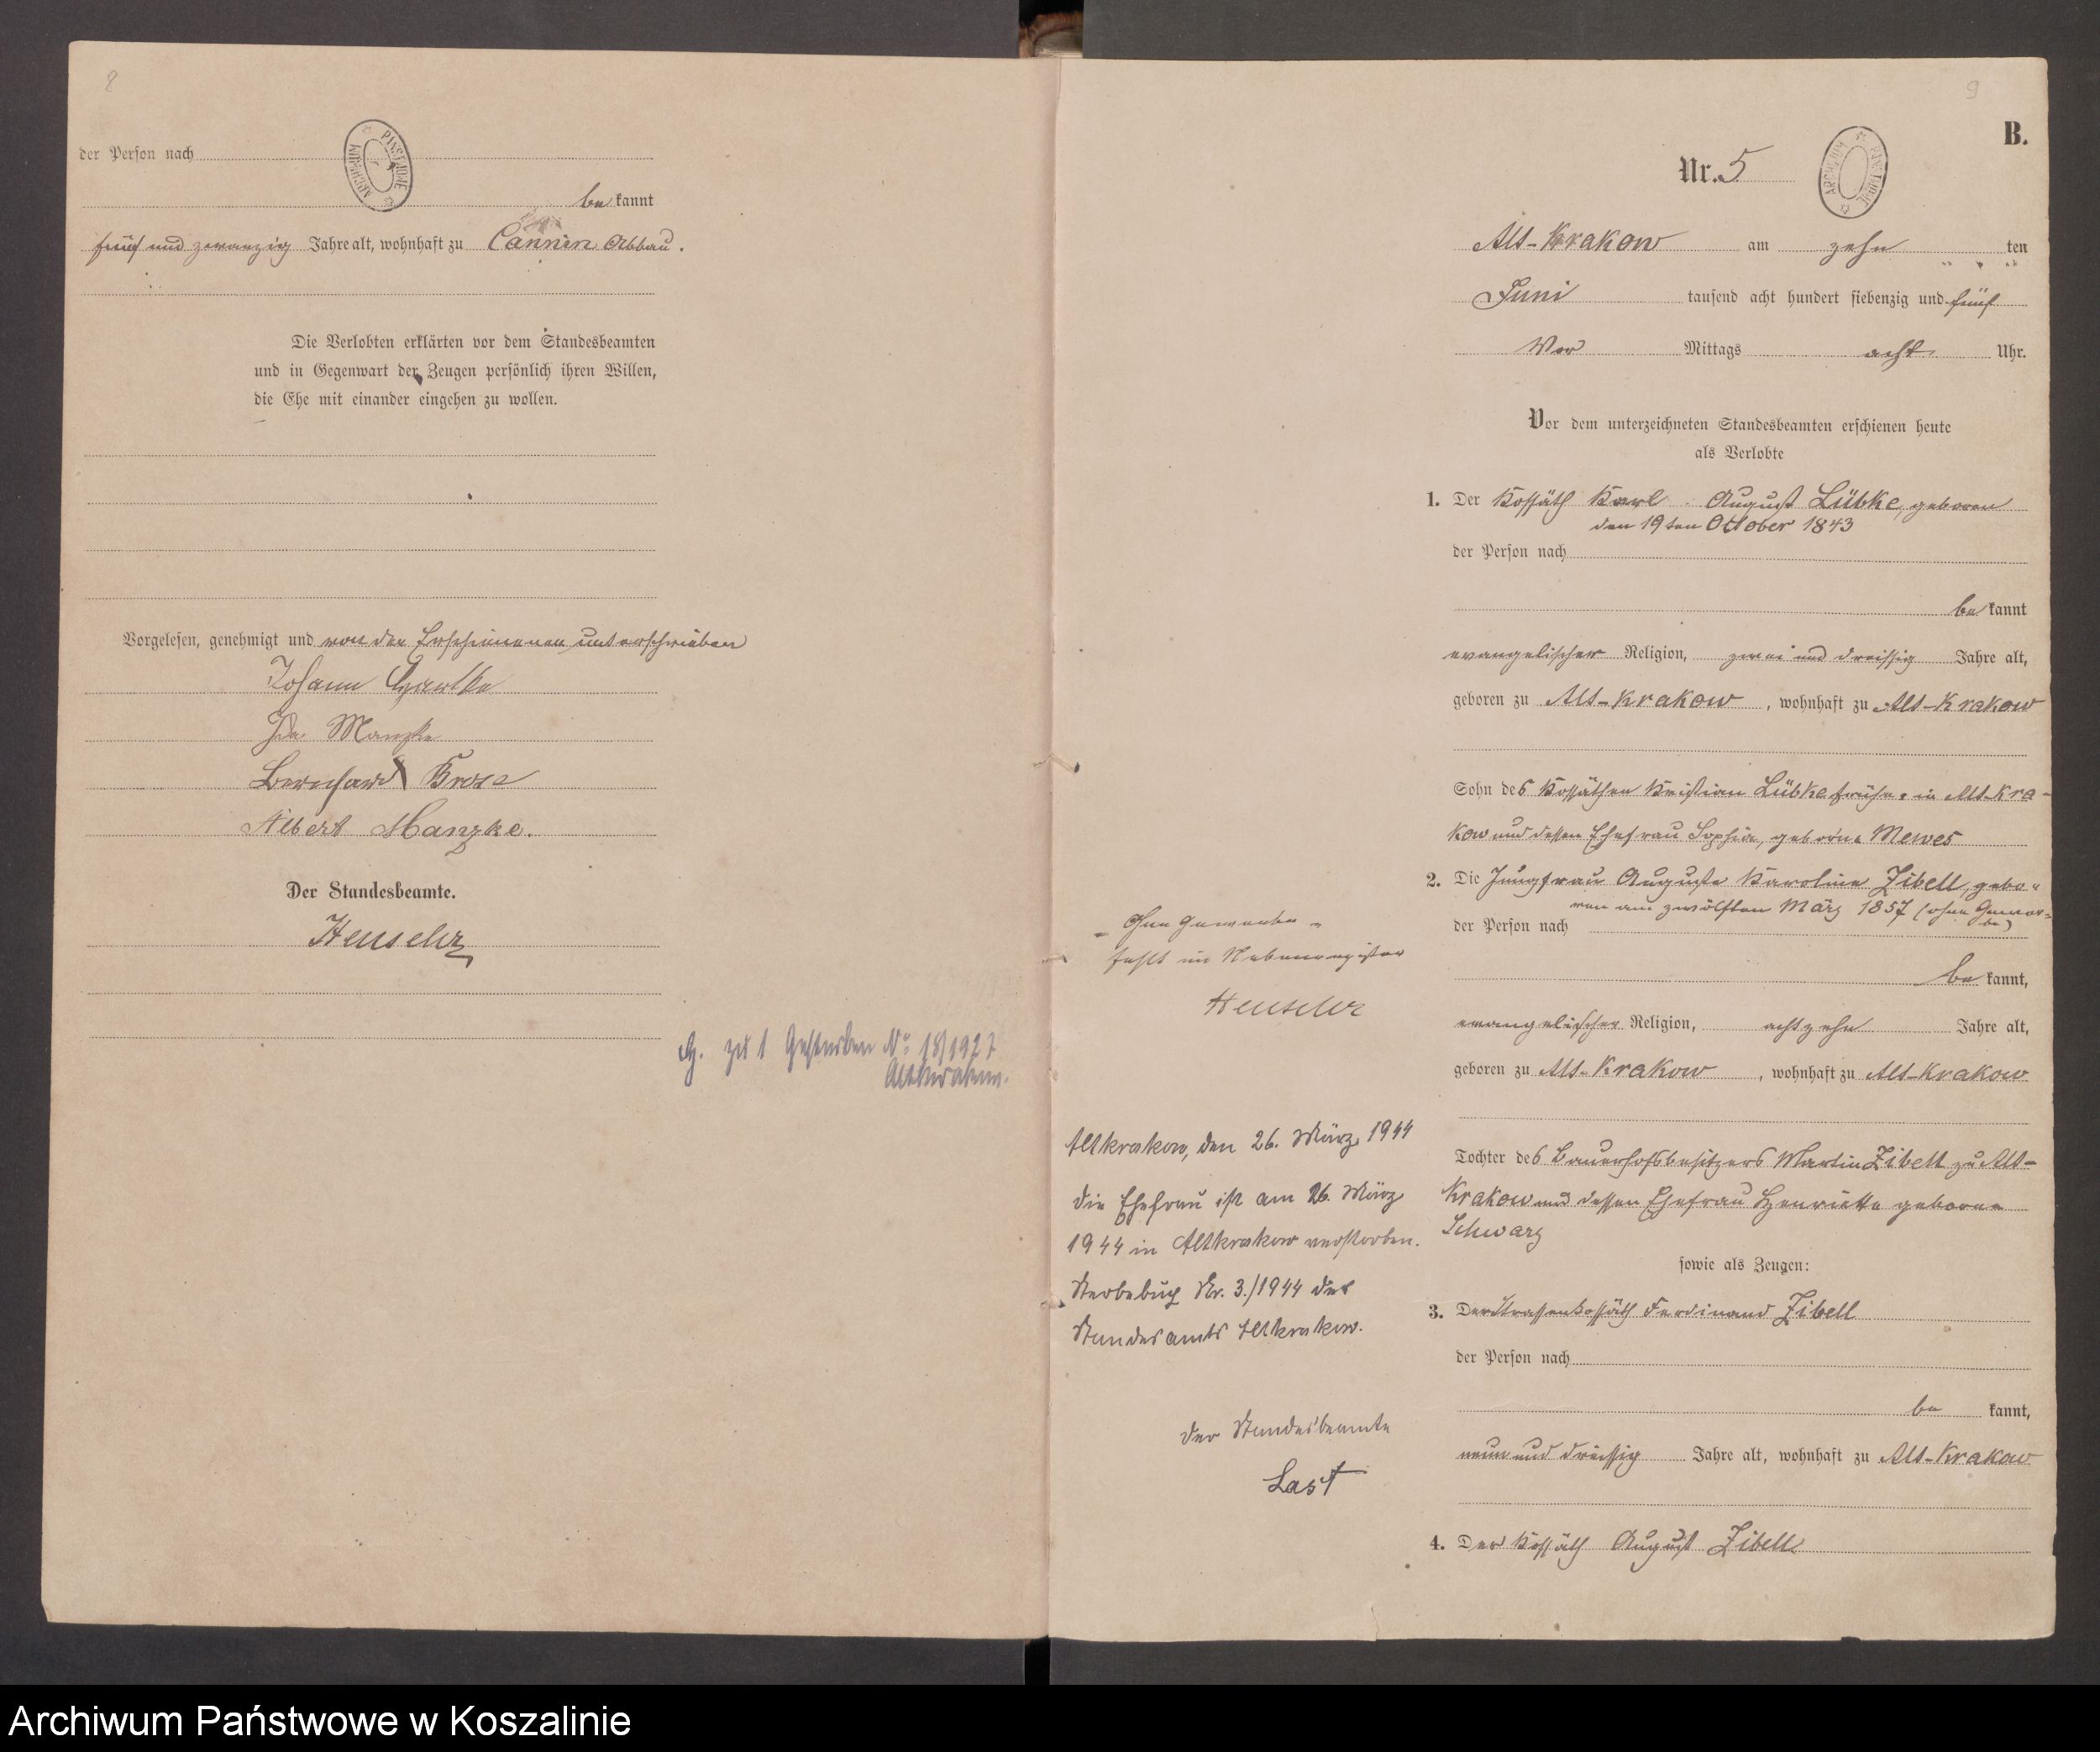 8
der Person nach
ARCHIWUM PAŃSTWOWE
be kannt
fünf und zwanzig Jahre alt, wohnhaft zu Cannin Abbau.
Die Verlobten erklärten vor dem Standesbeamten
und in Gegenwart der Zeugen persönlich ihren Willen,
die Ehe mit einander eingehen zu wollen.
Vorgelesen, genehmigt und von den Erschienenen unterschrieben
Johann
Ida Manzke
Bernhard
Albert Manzke.
Der Standesbeamte.
Henseler
zu 1 Gestorben No 18/1927
Altkrakow.
9
B.
Nr. 5
ARCHIWUM PAŃSTWOWE
Alt-Krakow am zehn ten
Juni tausend acht hundert siebenzig und fünf
Vor Mittags acht Uhr.
Vor dem unterzeichneten Standesbeamten erschienen heute
als Verlobte
1. Der Kossäth Karl August Lübke, geboren
den 19ten October 1843
der Person nach
be kannt
evangelischer Religion, zwei und dreissig Jahre alt,
geboren zu Alt-Krakow, wohnhaft zu Alt-Krakow
Sohn des Kossäthen Kristian Lübke früher in Alt-Kra-
kow und dessen Ehefrau Sophie, geborne Mewes
2. Die Jungfrau Auguste Karoline Zibell, gebo-
ren am zwölften März 1857 (ohne Gewer-
be)
der Person nach
be kannt,
evangelischer Religion, achtzehn Jahre alt,
geboren zu Alt-Krakow, wohnhaft zu Alt-Krakow
Tochter des Bauerhofsbesitzers Martin Zibell zu Alt-
Krakow und dessen Ehefrau Henriette geborne
Schwarz
sowie als Zeugen:
3. Der Strassenkossäth Ferdinand Zibell
der Person nach
be kannt,
neun und dreissig Jahre alt, wohnhaft zu Alt-Krakow
4. Der Kossäth August Zibell
"Ohne Gewerbe"
fehlt im Nebenregister
Henseler
Altkrakow, den 26. März 1944
Die Ehefrau ist am 26. März
1944 in Altkrakow verstorben.
Sterbebuch Nr. 3./1944 des
Standesamts Altkrakow.
Der Standesbeamte
Last
Archiwum Państwowe w Koszalinie